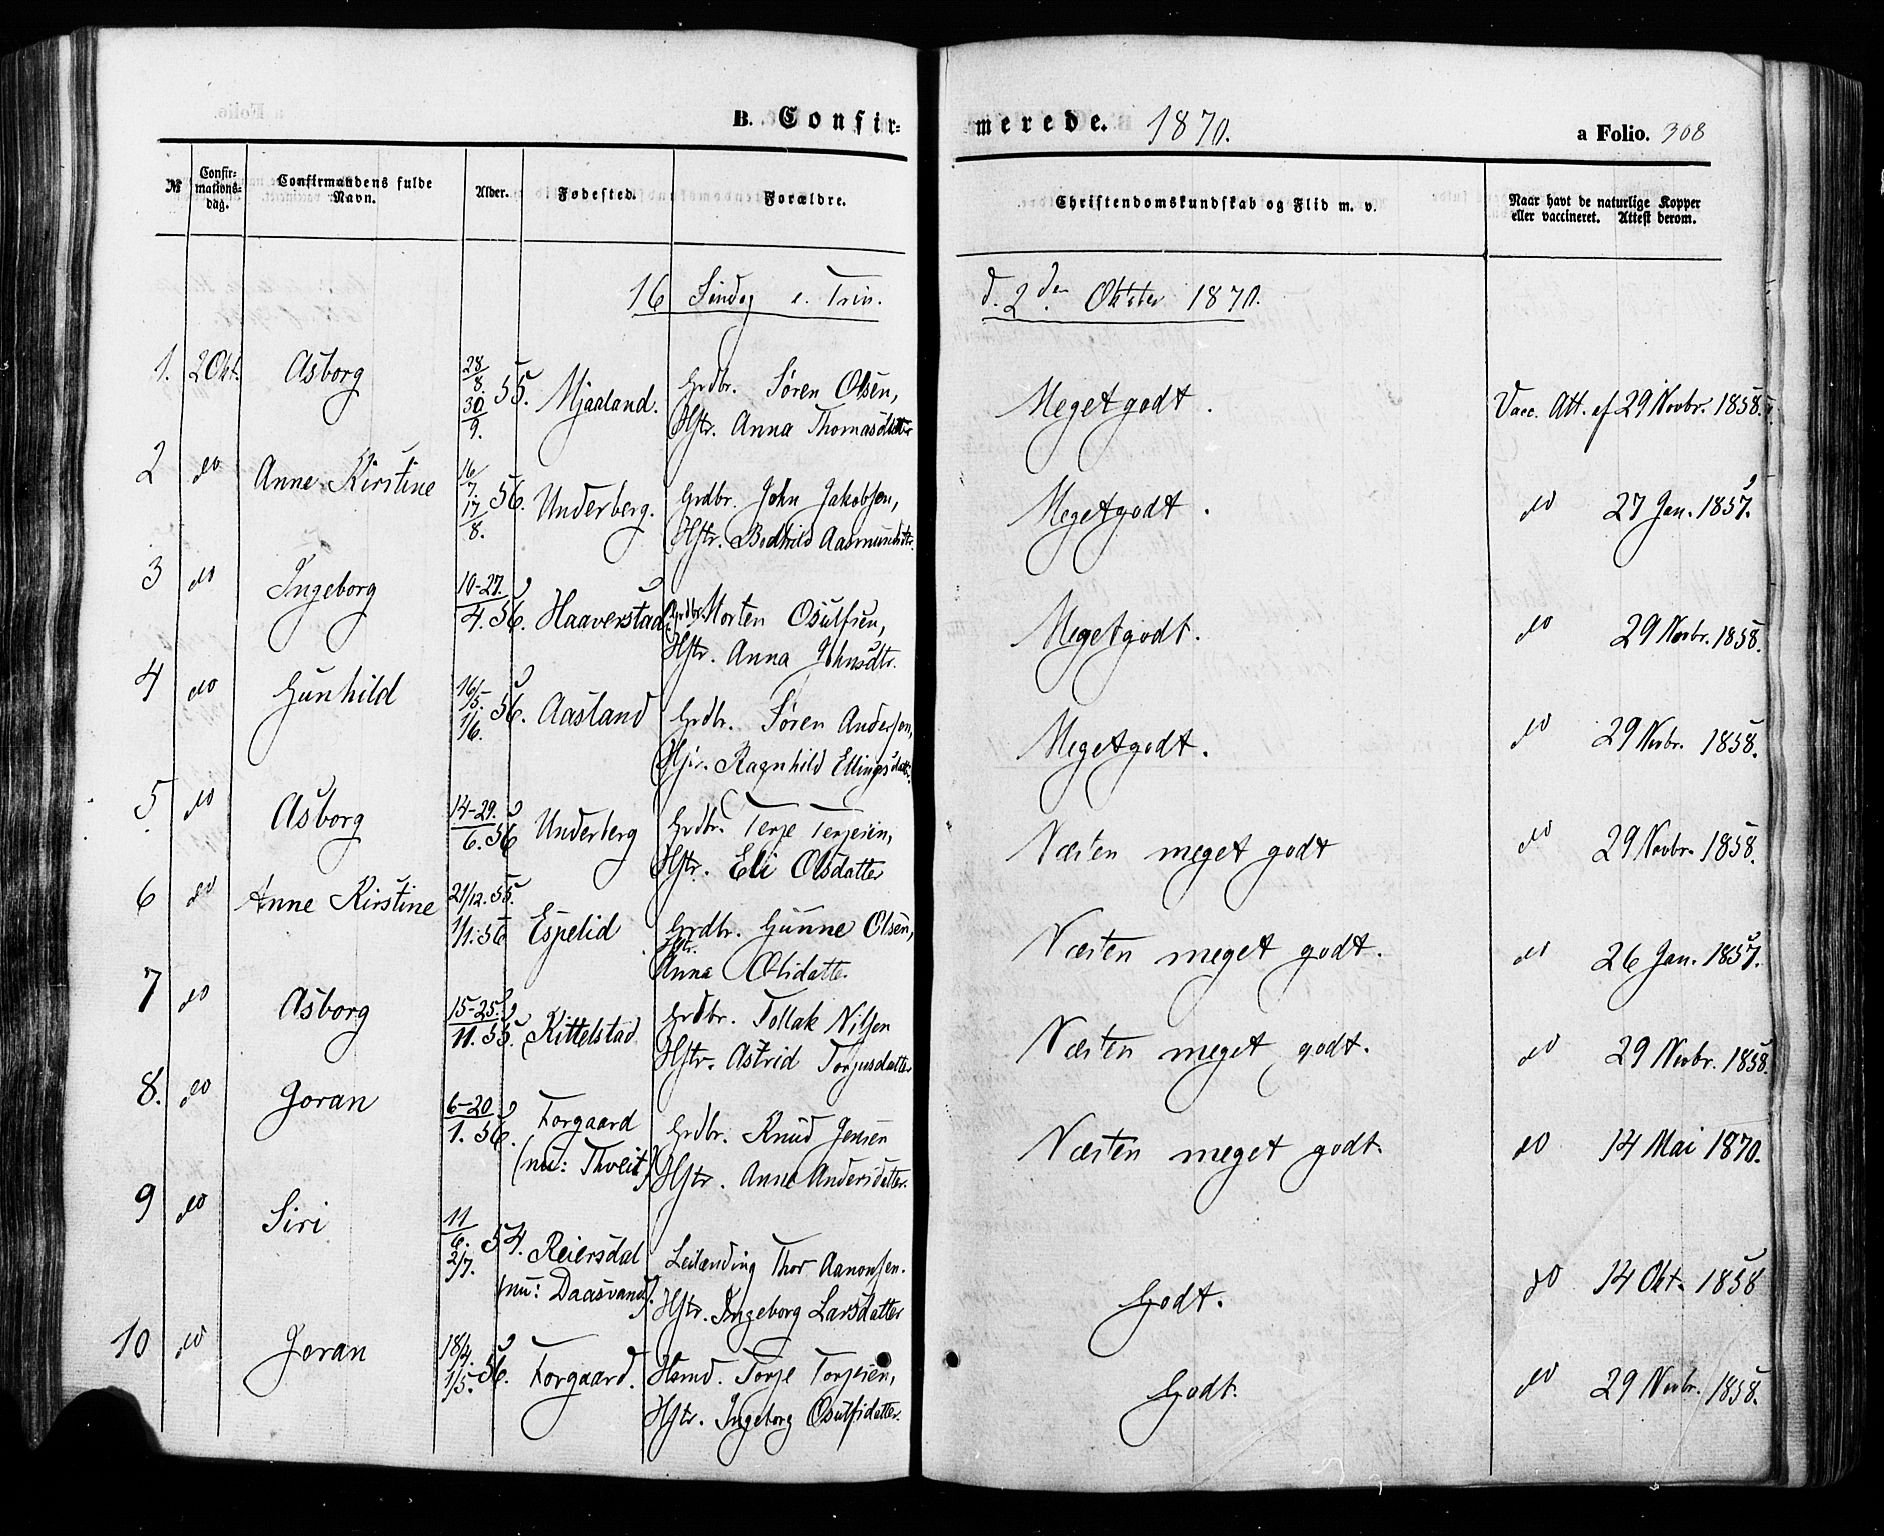 B. Confir- merede. 1870. a Folio. 308
№ Confir-mations-dag. Confirmandens fulde Navn. Alder. Fødested. Forældre. Christendomskundskab og Flid m. v. Naar havt de naturlige Kopper eller vaccineret. Attest derom.
16 Søndag e. Trin. d. 2den Oktober 1870.
1. 2 Okt. Asborg 28/8. 30/9. 55. Mjaaland. Grdbr. Søren Olsen, Meget godt. Vacc. Att. af 29 Novbr. 1858.
Hstr. Anna Thomasdatter
2 do Anne Kirstine 16/7. 17/8. 56. Underberg. Grdbr. John Jakobsen, Meget godt. do 27 Jan. 1857.
Hstr. Bodhild Aasmundsdtr.
3 do Ingeborg 10-27./4. 56. Haaverstad Grdbr. Morten Osulfsen, Meget godt. do 29 Novbr. 1858.
Hstr. Anna Johnsdtr.
4 do Gunhild 16/5. 1/6. 56. Aasland Grdbr. Søren Andersen, Meget godt. do 29 Novbr. 1858.
Hstr. Ragnhild Ellingsdatt.
5. do Asborg 14-29./6. 56 Underberg Grdbr. Terje Terjesen, Næsten meget godt do 29 Novbr. 1858.
Hstr. Eli Olsdatter
6 do Anne Kirstine 21/12. 55. 1/1. 56 Espelid Grdbr. Gunne Olsen, Næsten meget godt. do 26 Jan. 1857.
Hstr. Anna Olsdatter
7 do Asborg 15-25./11. 55. Kittelstad Grdbr. Tollak Nilsen Næsten meget godt. do 29 Novbr. 1858.
Hstr. Astrid Torjusdatter
8. do Joran 6-20/1. 56. Forgaard Grdbr. Knud Jensen Næsten meget godt. do 14 Mai 1870.
(nu: Thveit) Hstr. Anne Andersdatter
9 do Siri 11/6. 2/7. 54. Reiersdal Leilænding Thor Aanonsen. Godt. do 14 Okt. 1858
(nu: Daasvand). Hstr. Ingeborg Larsdatter
10 do Joran 18/4. 1/5. 56. Forgaard. Hsmd. Torje Torjesen, Godt. do 29 Novbr. 1858.
Hstr. Ingeborg Osulfsdatter.